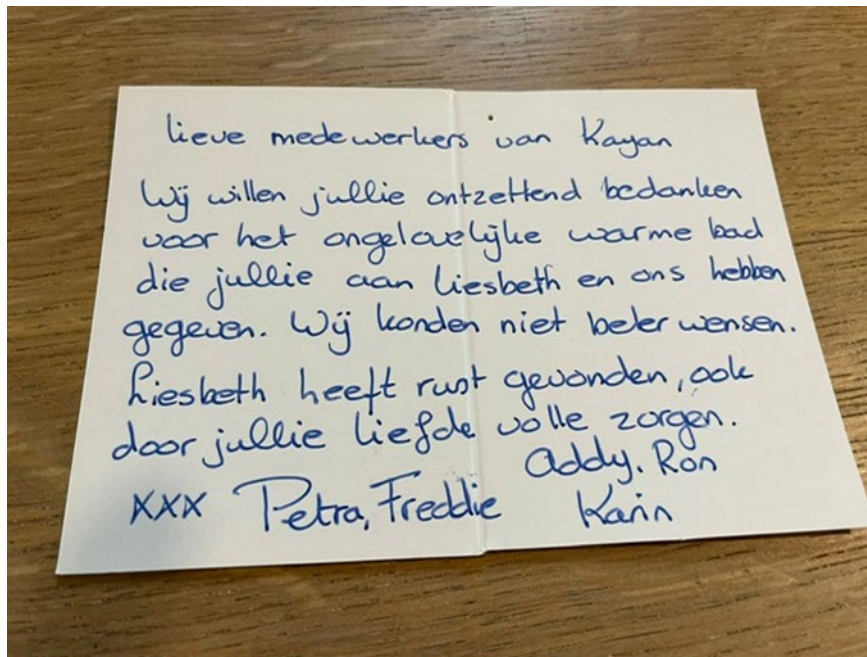 lieve medewerkers van Kayan
Wij willen jullie ontzettend bedanken
voor het ongelovelijke warme bad
die jullie aan Liesbeth en ons hebben
gegeven. Wij konden niet beter wensen.
Liesbeth heeft rust gevonden, ook
door jullie liefde volle zorgen.
Addy. Ron
xxx Petra, Freddie Karin